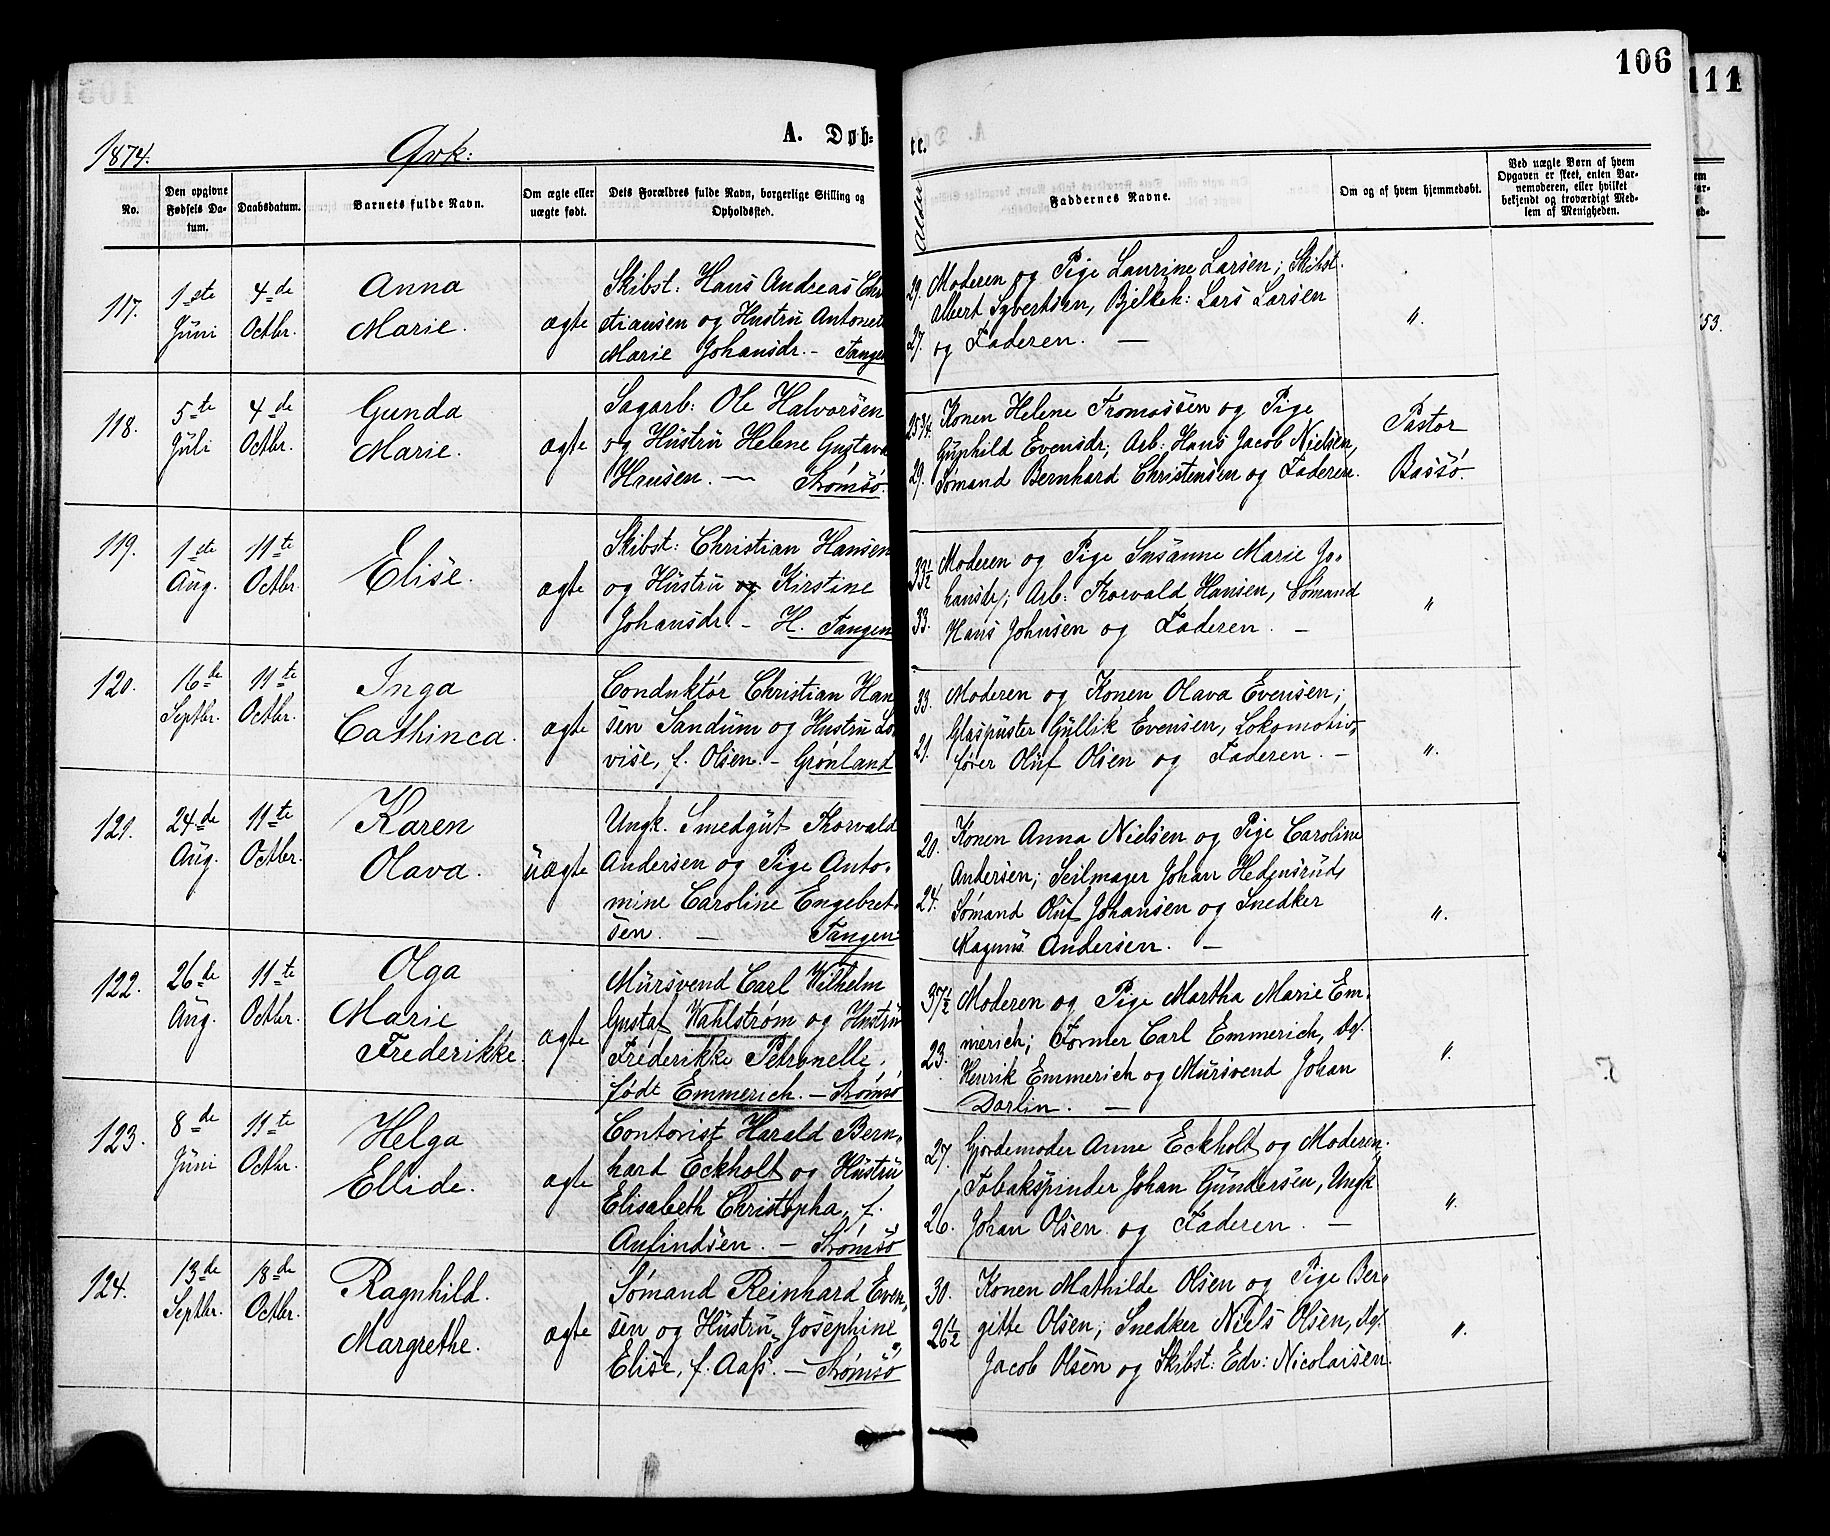 106
111
1874.
Gvk:
A. Døb=
te.
No.
Den opgivne Fødsels Da-tum.
Daabsdatum.
Barnets fulde Navn.
Om ægte eller uægte født.
Dets Forældres fulde Navn, borgerlige Stilling og Opholdssted.
Alder
Faddernes Navne.
Om og af hvem hjemmedøbt.
Ved uægte Børn af hvem Opgaven er skeet, enten Bar-nemoderen, eller hvilket bekjendt og troværdigt Med-lem af Menigheden.
117.
1ste
Juni
4de
Octbr.
Anna
Marie.
ægte
Skibst: Hans Andreas Chr
tiansen og Hustru Antonet
Marie Johansdr. – Tangen
29.
27.
Moderen og Pige Laurine Larsen; Skibst.
Albert Syvertsen, Bjelkeh: Lars Larsen
og Faderen. —
"
53.
118.
5te
Juli
4de
Octbr.
Gunda
Marie.
ægte
Sagarb: Ole Halvorsen
og Hustru Helene Gustava
Hansen. — Strømsø.
25 3/4.
29.
Konen Helene Tromassen og Pige
Gunhild Evensdr; Arb: Hans Jacob Nielsen,
Sømand Bernhard Christensen og Faderen.
Pastor
Bassø.
119.
1ste
Aug.
11te
Octbr.
Elise.
ægte
Skibst: Christian Hansen
og Hustru og Kirstine
Johansdr – H. Tangen
33½
33.
Moderen og Pige Susanne Marie Jo-
hansdr; Arb: Thorvald Hansen, Sømand
Hans Johnsen og Faderen. –
"
120.
16de
Septbr.
11te
Octbr.
Inga
Cathinca.
ægte
Conduktør Christian Han
sen Sandum og Hustru Lo-
vise, f. Olsen. – Grønland
33.
21.
Moderen og Konen Olava Evensen;
Glaspuster Gullik Evensen, Lokomotiv-
fører Oluf Olsen og Faderen. –
"
121.
24de
Aug.
11te
Octbr.
Karen
Olava.
uægte
Ungk. Smedgut Thorvald
Andersen og Pige Anto-
mine Caroline Engebret-
sen. — Tangen
20.
24.
Konen Anna Nielsen og Pige Caroline
Andersen; Seilmager Johan Hedensrud,
Sømand Oluf Johansen og Snedker
Magnus Andersen. –
"
122.
26de
Aug.
11te
Octbr.
Olga
Marie
Frederikke.
ægte
Mursvend Carl Wilhelm
Gustaf Wahlstrøm og Hustru
Frederikke Petronelle,
født Emmerich. – Strømsø
37½
23.
Moderen og Pige Martha Marie Em-
merich; Former Carl Emmerich, do.
Henrik Emmerich og Mursvend Johan
Dorlin. —
"
123.
8de
Juni
11te
Octbr.
Helga
Ellide.
ægte
Contorist Harald Bern-
hard Eckholt og Hustru
Elisabeth Christopha, f.
Anfindsen. – Strømsø
27.
26.
Gjordemoder Anne Eckholt og Moderen;
Tobakspinder Johan Gundersen, Ungk
Johan Olsen og Faderen. —
"
124.
13de
Septbr.
18de
Octbr.
Ragnhild.
Margrethe.
ægte
Sømand Reinhard Even-
sen og Hustru Josephine
Elise, f. Aass. – Strømsø
30.
26½
Konen Mathilde Olsen og Pige Ber-
gitte Olsen; Snedker Niels Olsen, do.
Jacob Olsen og Skibst: Edv: Nicolaisen.
"